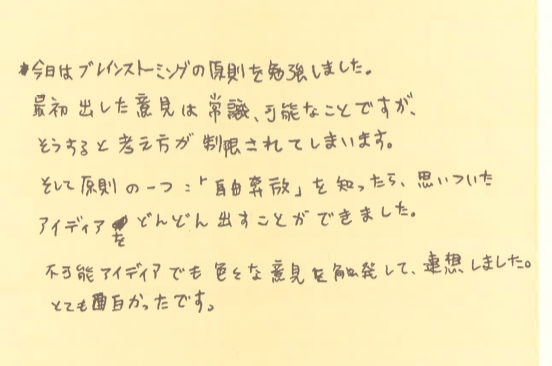 今日はブレインストーミングの原則を勉強しました。
最初出した意見は常識、可能なことですが、
そうすると考え方が制限されてしまいます。
そして原則の一つ：「自由奔放」を知ったら、思いついた
アイディアをどんどん出すことができました。
不可能アイディアでも色々な意見を触発して、連想しました。
とても面白かったです。